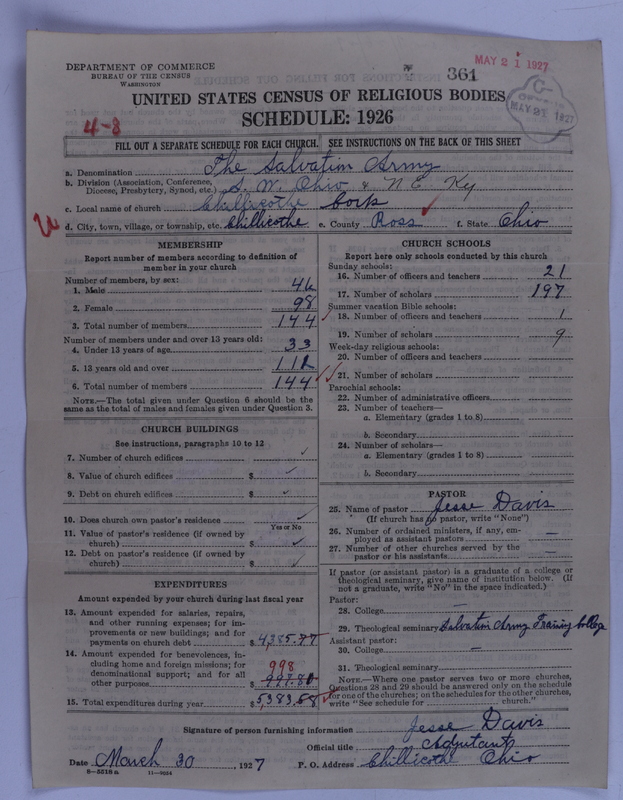 DEPARTMENT OF COMMERCE
BUREAU OF THE CENSUS
WASHINGTON
361
MAY 21 1927
MAY 21 1927
UNITED STATES CENSUS OF RELIGIOUS BODIES
SCHEDULE: 1926
4-8
FILL OUT A SEPARATE SCHEDULE FOR EACH CHURCH. SEE INSTRUCTIONS ON THE BACK OF THIS SHEET
a. Denomination The Salvation Army
b. Division (Association, Conference, Diocese, Presbytery, Synod, etc.) S. W. Ohio & N E. Ky
c. Local name of church Chillicothe Corps
d. City, town, village, or township, etc. Chillicothe e. County Ross f. State Ohio
MEMBERSHIP
Report number of members according to definition of
member in your church
Number of members, by sex:
1. Male 46
2. Female 98
3. Total number of members 144
Number of members under and over 13 years old:
4. Under 13 years of age 33
5. 13 years old and over 111
6. Total number of members 144
NOTE.—The total given under Question 6 should be
same as the total of males and females given under Question 3.
CHURCH BUILDINGS
See instructions, paragraphs 10 to 12
7. Number of church edifices
8. Value of church edifices $
9. Debt on church edifices $
10. Does church own pastor's residence
Yes or No
11. Value of pastor's residence (if owned by
church) $
12. Debt on pastor's residence (if owned by
church) $
EXPENDITURES
Amount expended by your church during last fiscal year
13. Amount expended for salaries, repairs,
and other running expenses; for im-
provements or new buildings; and for
payments on church debt $ 4,385.77
14. Amount expended for benevolences, in-
cluding home and foreign missions; for 998
denominational support; and for all
other purposes $ 997.81
15. Total expenditures during year $ 5,383.58
CHURCH SCHOOLS
Report here only schools conducted by this church
Sunday schools:
16. Number of officers and teachers 21
17. Number of scholars 197
Summer vacation Bible schools:
18. Number of officers and teachers 1
19. Number of scholars 9
Week-day religious schools:
20. Number of officers and teachers
21. Number of scholars
Parochial schools:
22. Number of administrative officers
23. Number of teachers—
a. Elementary (grades 1 to 8)
b. Secondary
24. Number of scholars—
a. Elementary (grades 1 to 8)
b. Secondary
PASTOR
25. Name of pastor Jesse Davis
(If church has no pastor, write "None")
26. Number of ordained ministers, if any, em-
ployed as assistant pastors —
27. Number of other churches served by the
pastor or his assistants —
If pastor (or assistant pastor) is a graduate of a college or
theological seminary, give name of institution below. (If
not a graduate, write "No" in the space indicated.)
Pastor:
28. College —
29. Theological seminary Salvation Army Training College
Assistant pastor:
30. College —
31. Theological seminary
NOTE.—Where one pastor serves two or more churches,
Questions 28 and 29 should be answered only on the schedule
for one of the churches; on the schedules for the other churches,
write "See schedule for church."
Signature of person furnishing information Jesse Davis
Official title Adjutant
Date March 30, 1927 P. O. Address Chillicothe Ohio
8-5518a 11-9034